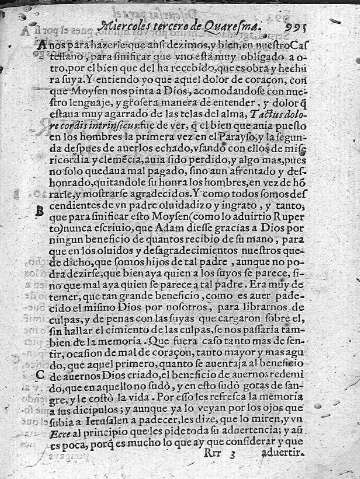 Miercoles tercero de Quaresma. 995
Anos para hazerle que ansi dezimos, y bien, en nuestro Cas
tellano, para sinificar que vno está muy obligado a o-
tro, por el bien que del ha recebido, que es obra y hechu
ra suya. Y entiendo yo que aquel dolor de coraçon, con
que Moysen nos pinta a Dios, acomodandose con nue-
stro lenguaje, y grosera manera de entender, y dolor q̃
estaua muy agarrado de las telas del alma, Tactus dolo-
re cordis intrinsicus: fue de ver, q̃ el bien que auia puesto
en los hombres la primera vez en el Parayso, y la segun-
da despues de auerlos echado, vsando con ellos de mise
ricordia y clemẽcia, auia sido perdido, y algo mas, pues
no solo quedaua mal pagado, sino aun afrentado y des-
honrado, quitandole su honra los hombres, en vez de hõ
rarle, y mostrarse agradecidos. Y como todos somos des
cendientes de vn padre oluidadizo y ingrato, y tanto,
B
que para sinificar esto Moysen (como lo aduirtio Ruper
to) nunca escriuio, que Adam diesse gracias a Dios por
ningun beneficio de quantos recibio de su mano, para
que en los oluidos y desagradecimientos nuestros que-
de dicho, que somos hijos de tal padre, aunque no po
dra dezirse, que bien aya quien a los suyos se parece, si-
no que mal aya quien se parece a tal padre. Era muy de
temer, que tan grande beneficio, como es auer pade-
cido el mismo Dios por nosotros, para librarnos de
culpas, y de penas con las suyas que cargaron sobre el,
sin hallar el cimiento de las culpas, se nos passaria tam-
bien de la memoria. Que fuera caso tanto mas de sen-
tir, ocasion de mal de coraçon, tanto mayor y mas agu
do, que aquel primero, quanto se auentaja al beneficio
C
de auernos Dios criado, el beneficio de auernos redemi
do, que en aquello no sudò, y en esto sudó gotas de san-
gre, y le costò la vida. Por esso les refresca la memoria
a sus dicipulos; y aunque ya lo veyan por los ojos que
subia a Ierusalen a padecer, les dize, que lo miren, y vn
Ecce al principio que les pide toda su aduertencia; y aſi
es poca, porq̃ es mucho lo que ay que considerar y que
Rrr 3 aduertir.